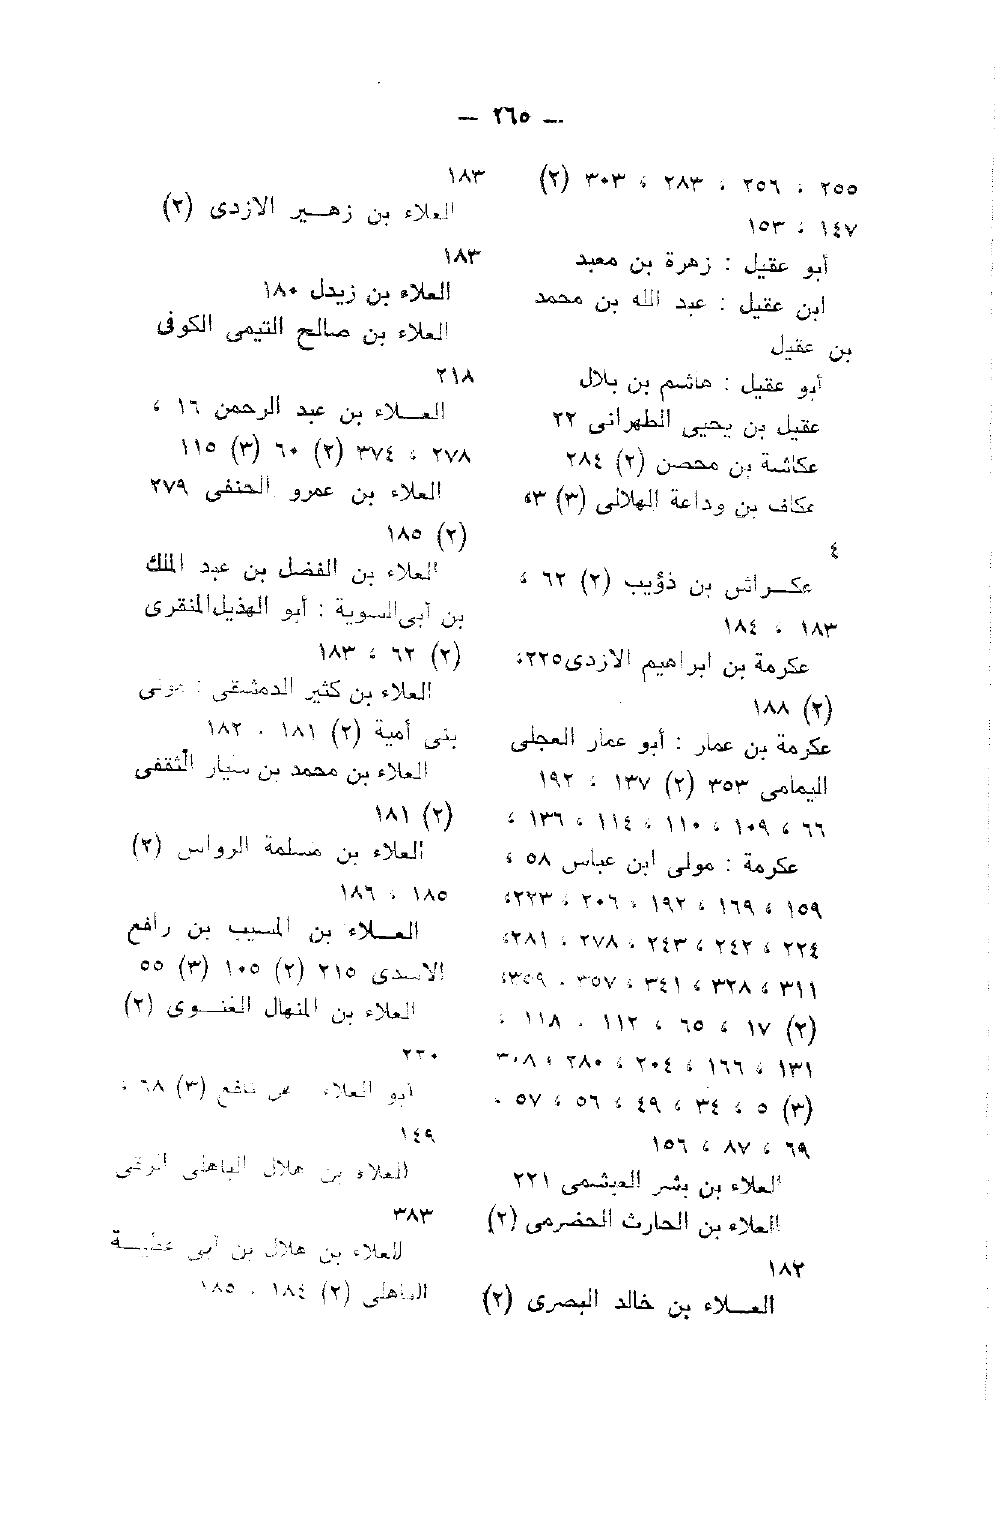 — ٢٦٥ —
٢٥٥ ، ٢٥٦ ، ٢٨٣ ، ٣٠٣ (٢)
١٤٧ ، ١٥٣
أبو عقيل : زهرة بن معبد
ابن عقيل : عبد الله بن محمد
بن عقيل
أبو عقيل : هاشم بن بلال
عقيل بن يحيى الطهرانى ٢٢
عكاشة بن محصن (٢) ٢٨٤
عكاف بن وداعة الهلالى (٣) ٣،
٤
عكـــراش بن ذؤيب (٢) ٦٢ ،
١٨٣ ، ١٨٤
عكرمة بن ابراهيم الازدى ٢٢٥،
(٢) ١٨٨
عكرمة بن عمار : أبو عمار العجلى
اليمامى ٣٥٣ (٢) ١٣٧ ، ١٩٢
٦٦ ، ١٠٩ ، ١١٠ ، ١١٤ ، ١٣٦ ،
عكرمة : مولى ابن عباس ٥٨ ،
١٥٩ ، ١٦٩ ، ١٩٢ ، ٢٠٦ ، ٢٢٣،
٢٢٤ ، ٢٤٢ ، ٢٤٣ ، ٢٧٨ ، ٢٨١،
٣١١ ، ٣٢٨ ، ٣٤١ ، ٣٥٧ ، ٣٥٩،
(٢) ١٧ ، ٦٥ ، ١١٢ ، ١١٨ ،
١٣١ ، ١٦٦ ، ٢٠٤ ، ٢٨٠ ، ٣٠٨
(٣) ٥ ، ٣٤ ، ٤٩ ، ٥٦ ، ٥٧ ،
٦٩ ، ٨٧ ، ١٥٦
العلاء بن بشر العبشمى ٢٢١
العلاء بن الحارث الحضرمى (٢)
١٨٢
العـــلاء بن خالد البصرى (٢)
١٨٣
العلاء بن زهـــير الازدى (٢)
١٨٣
العلاء بن زيدل ١٨٠
العلاء بن صالح التيمى الكوفى
٢١٨
العـــلاء بن عبد الرحمن ١٦ ،
٢٧٨ ، ٣٧٤ (٢) ٦٠ (٣) ١١٥
العلاء بن عمرو الحنفى ٢٧٩
(٢) ١٨٥
العلاء بن الفضل بن عبد الملك
بن أبى السوية : أبو الهذيل المنقرى
(٢) ٦٢ ، ١٨٣
العلاء بن كثير الدمشقى : مولى
بنى أمية (٢) ١٨١ ، ١٨٢
العلاء بن محمد بن سيار الثقفى
(٢) ١٨١
العلاء بن مسلمة الرواس (٢)
١٨٥ ، ١٨٦
العـــلاء بن المسيب بن رافع
الاسدى ٢١٥ (٢) ١٠٥ (٣) ٥٥
العلاء بن المنهال الغنـــوى (٢)
٢٢٠
أبو العلاء عن نافع (٣) ٦٨ ،
١٤٩
العلاء بن هلال الباهلى الرقى
٣٨٣
العلاء بن هلال بن أبى عطيـــة
الباهلى (٢) ١٨٤ ، ١٨٥